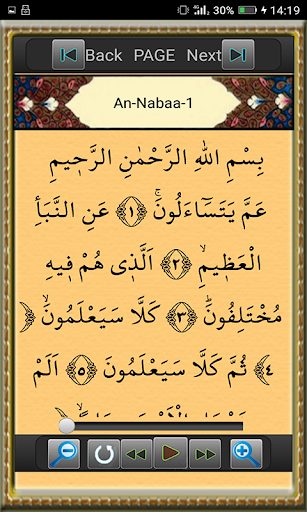 30% 14:19
Back PAGE Next
An-Nabaa-1
بِسْمِ اللهِ الرَّحْمٰنِ الرَّح۪يمِ
عَمَّ يَتَسَٓاءَلُونَۚ ﴿١﴾ عَنِ النَّبَأِ
الْعَظ۪يمِۙ ﴿٢﴾ اَلَّذ۪ي هُمْ ف۪يهِ
مُخْتَلِفُونَۜ ﴿٣﴾ كَلَّا سَيَعْلَمُونَۙ ﴿
٤﴾ ثُمَّ كَلَّا سَيَعْلَمُونَ ﴿٥﴾ اَلَمْ